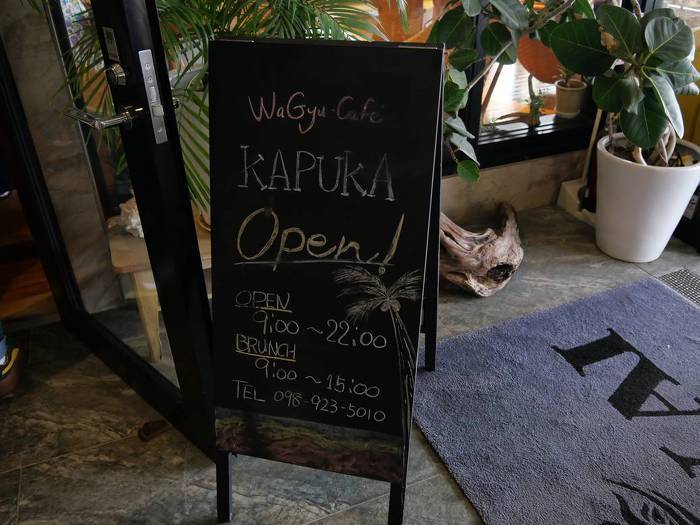 WaGyu-Café
KAPUKA
Open!
OPEN
9:00 ~ 22:00
BRUNCH
9:00 ~ 15:00
TEL 098-923-5010
NA